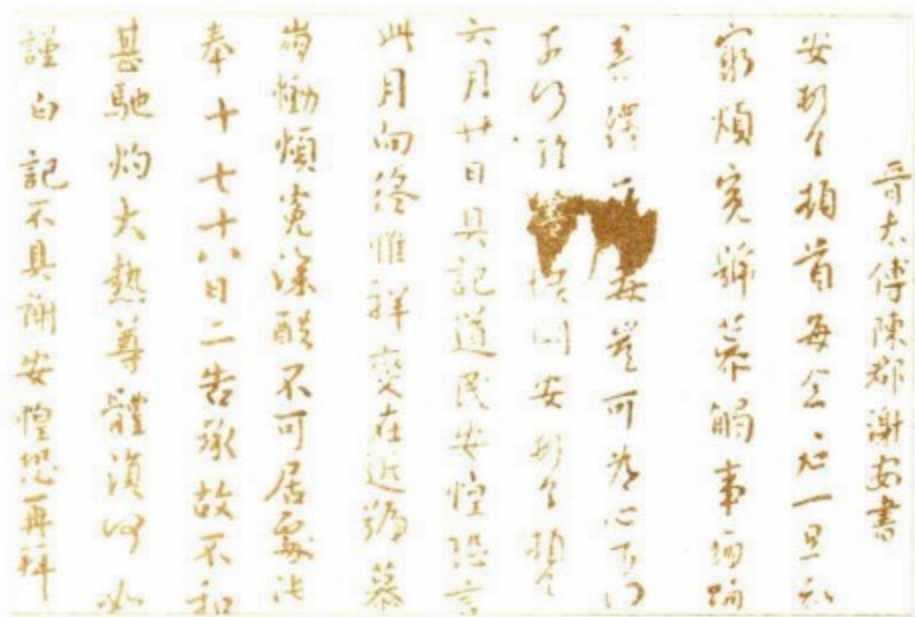 晉太傅陳郡謝安書
安頓首頓首每念君一旦知
窮煩冤號慕觸事崩踊
尋繹荼毒豈可為心奈何
奈何臨書悽悶安頓首頓首
六月廿日具記道民安惶恐言
此月向終惟祥變在近號慕
崩慟煩冤深酷不可居處比
奉十七十八日二告承故不和
甚馳灼大熱尊體復何如
謹白記不具謝安惶恐再拜